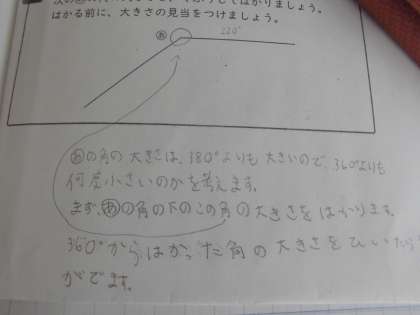 はかる前に、大きさの見当をつけましょう。
あ
220°
あの角の大きさは、180°よりも大きいので、360°よりも
何度小さいのかを考えます。
まず、あの角の下のこの角の大きさをはかります。
360°からはかった角の大きさをひいたら
がでます。